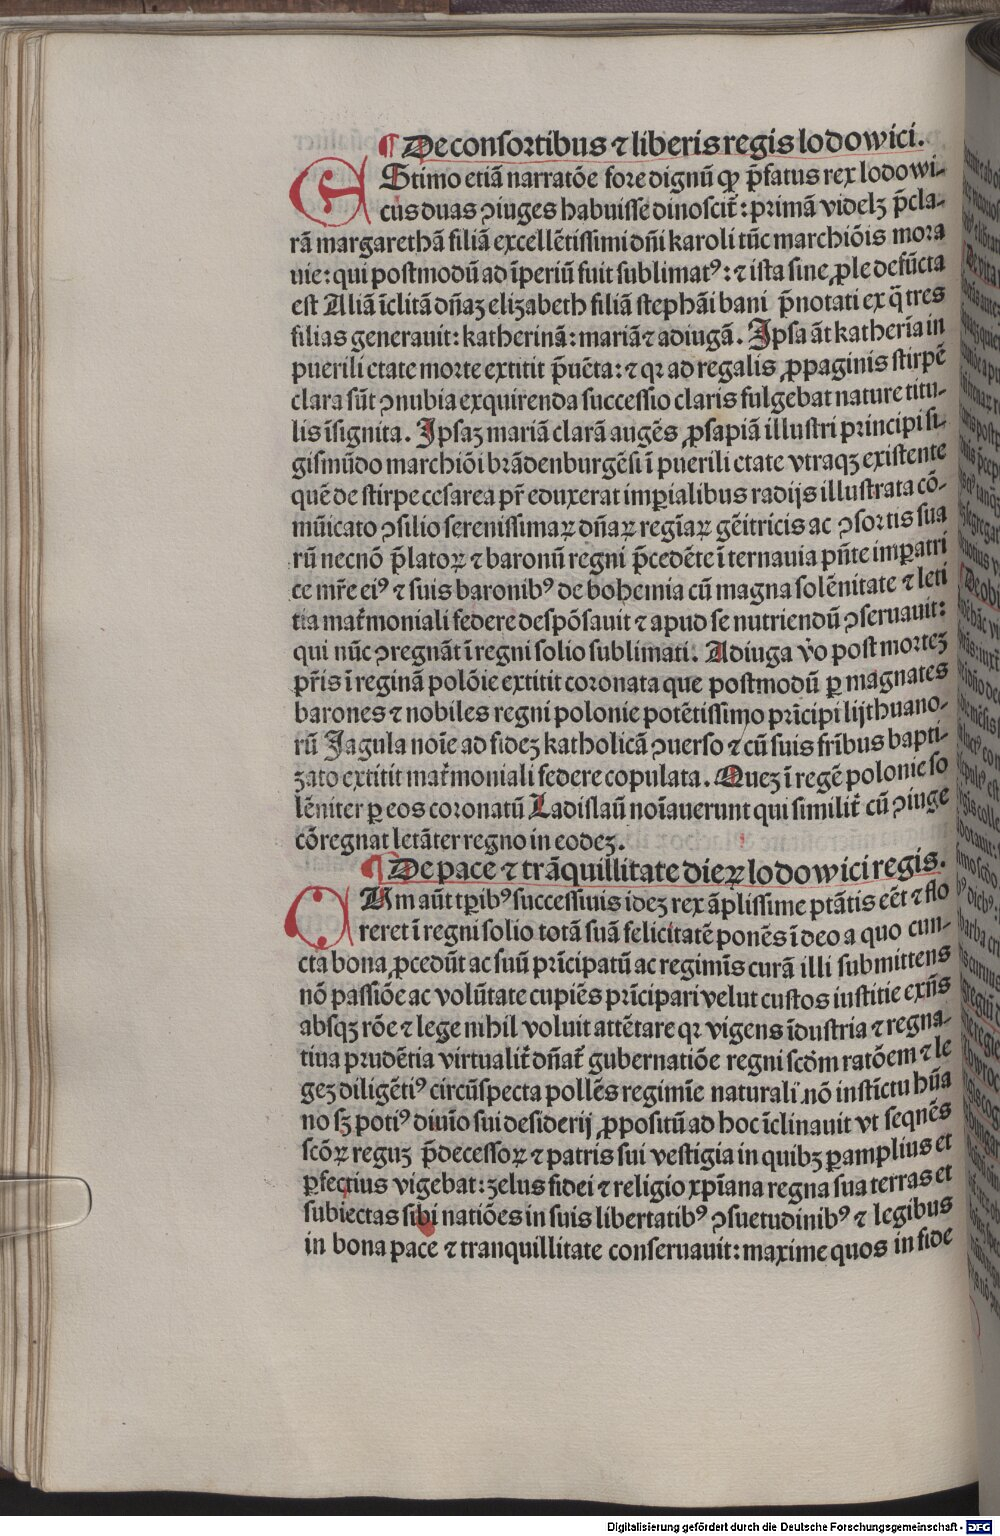 ¶ De conſortibus ⁊ liberis regis lodowici.
EStimo etiã narratõe fore dignũ ꝙ p̃fatus rex lodowi-
cus duas ↄiuges habuiſſe dinoſcit̃: primã videlꝫ p̃cla-
rã margarethã filiã excellẽtiſſimi dñi karoli tũc marchiõis mora
uie: qui poſtmodũ ad ĩperiũ fuit ſublimatꝰ: ⁊ iſta ſine ꝓle defũcta
eſt Aliã ĩclitã dñaꝫ elizabeth filiã ſtephãi bani p̃notati ex q̃ tres
filias generauit: katherinã: mariã ⁊ adiugã. Ipſa ãt katherĩa in
puerili etate morte extitit p̃uẽta: ⁊ qꝛ ad regalis ꝓpaginis ſtirpẽ
clara ſũt ↄnubia exquirenda ſucceſſio claris fulgebat nature titu-
lis ĩſignita. Ipſaꝫ mariã clarã augẽs ꝓſapiã illuſtri principi ſi-
giſmũdo marchiõi brãdenburgẽſi ĩ puerili etate vtraqꝫ exiſtente
quẽ de ſtirpe ceſarea pr̃ eduxerat imꝑialibus radijs illuſtrata cõ-
mũicato ↄſilio ſereniſſimaꝝ dñaꝝ regĩaꝝ gẽitricis ac ↄſortis ſua
rũ necnõ p̃latoꝝ ⁊ baronũ regni p̃cedẽte ĩ ternauia pñte imꝑatri
ce mr̃e eiꝰ ⁊ ſuis baronibꝰ de bohemia cũ magna ſolẽnitate ⁊ leti
tia mat̃moniali federe deſpõſauit ⁊ apud ſe nutriendũ ↄſeruauit:
qui nũc ↄregnãt ĩ regni ſolio ſublimati. Adiuga v̾o poſt morteꝫ
pr̃is ĩ reginã polõie extitit coronata que poſtmodũ ꝑ magnates
barones ⁊ nobiles regni polonie potẽtiſſimo prĩcipi lijthuano-
rũ Jagula noĩe ad fideꝫ katholicã ↄuerſo ⁊ cũ ſuis fr̃ibus bapti-
zato extitit mat̃moniali federe copulata. Queꝫ ĩ regẽ polonie ſo
lẽniter ꝑ eos coronatũ Ladiſlaũ noĩauerunt qui ſimilit̃ cũ ↄiuge
cõregnat letãter regno in eodeꝫ.
¶ De pace ⁊ trãquillitate dieꝝ lodowici regis.
CUm aũt tꝑibꝰ ſucceſſiuis ideꝫ rex ãpliſſime ptãtis eẽt ⁊ flo
reret ĩ regni ſolio totã ſuã felicitatẽ ponẽs ĩ deo a quo cun-
cta bona ꝓcedũt ac ſuũ prĩcipatũ ac regimĩs curã illi ſubmittens
nõ paſſiõe ac volũtate cupiẽs prĩcipari velut cuſtos iuſtitie exñs
abſqꝫ rõe ⁊ lege nihil voluit attẽtare qꝛ vigens ĩduſtria ⁊ regna-
tiua prudẽtia virtualit̃ dñat̃ gubernatiõe regni ſcd̃m ratõem ⁊ le
geꝫ diligẽtiꝰ circũſpecta pollẽs regimĩe naturali nõ inſtĩctu hũa
no ſꝫ potiꝰ diuĩo ſui deſiderij ꝓpoſitũ ad hoc ĩclinauit vt ſeqnẽs
ſcõꝝ reguꝫ p̃deceſſoꝝ ⁊ patris ſui veſtigia in quibꝫ ꝑamplius et
ꝑfectius vigebat: zelus fidei ⁊ religio xp̃iana regna ſua terras et
ſubiectas ſibi natiões in ſuis libertatibꝰ ↄſuetudinibꝰ ⁊ legibus
in bona pace ⁊ tranquillitate conſeruauit: maxime quos in fide
Digitalisierung gefördert durch die Deutsche Forschungsgemeinschaft - DFG